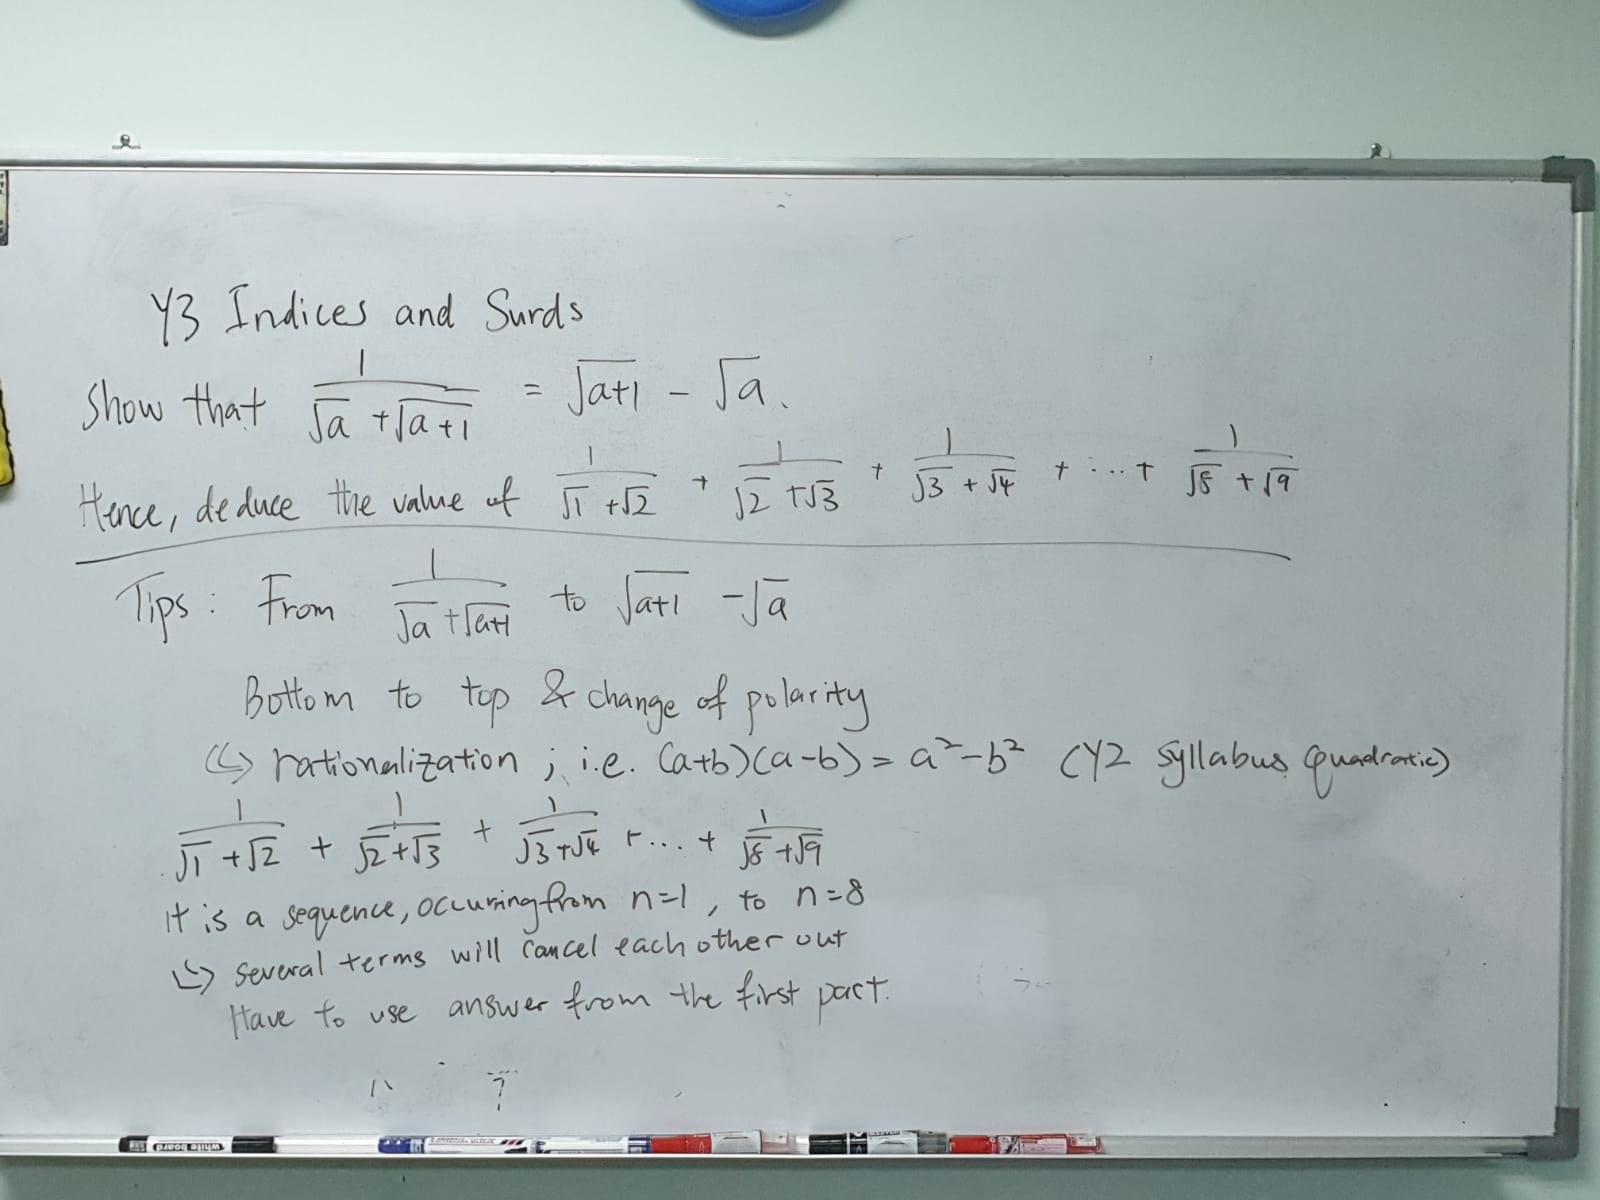 Y3 Indices and Surds
Show that 1/(√a + √(a+1)) = √(a+1) - √a.
Hence, deduce the value of 1/(√1 + √2) + 1/(√2 + √3) + 1/(√3 + √4) + ... + 1/(√8 + √9)
Tips: From 1/(√a + √(a+1)) to √(a+1) - √a
Bottom to top & change of polarity
↳ rationalization ; i.e. (a+b)(a-b) = a²-b² (Y2 syllabus quadratic)
1/(√1 + √2) + 1/(√2 + √3) + 1/(√3 + √4) + ... + 1/(√8 + √9)
It is a sequence, occuring from n=1, to n=8
↳ several terms will cancel each other out
Have to use answer from the first part.
White board